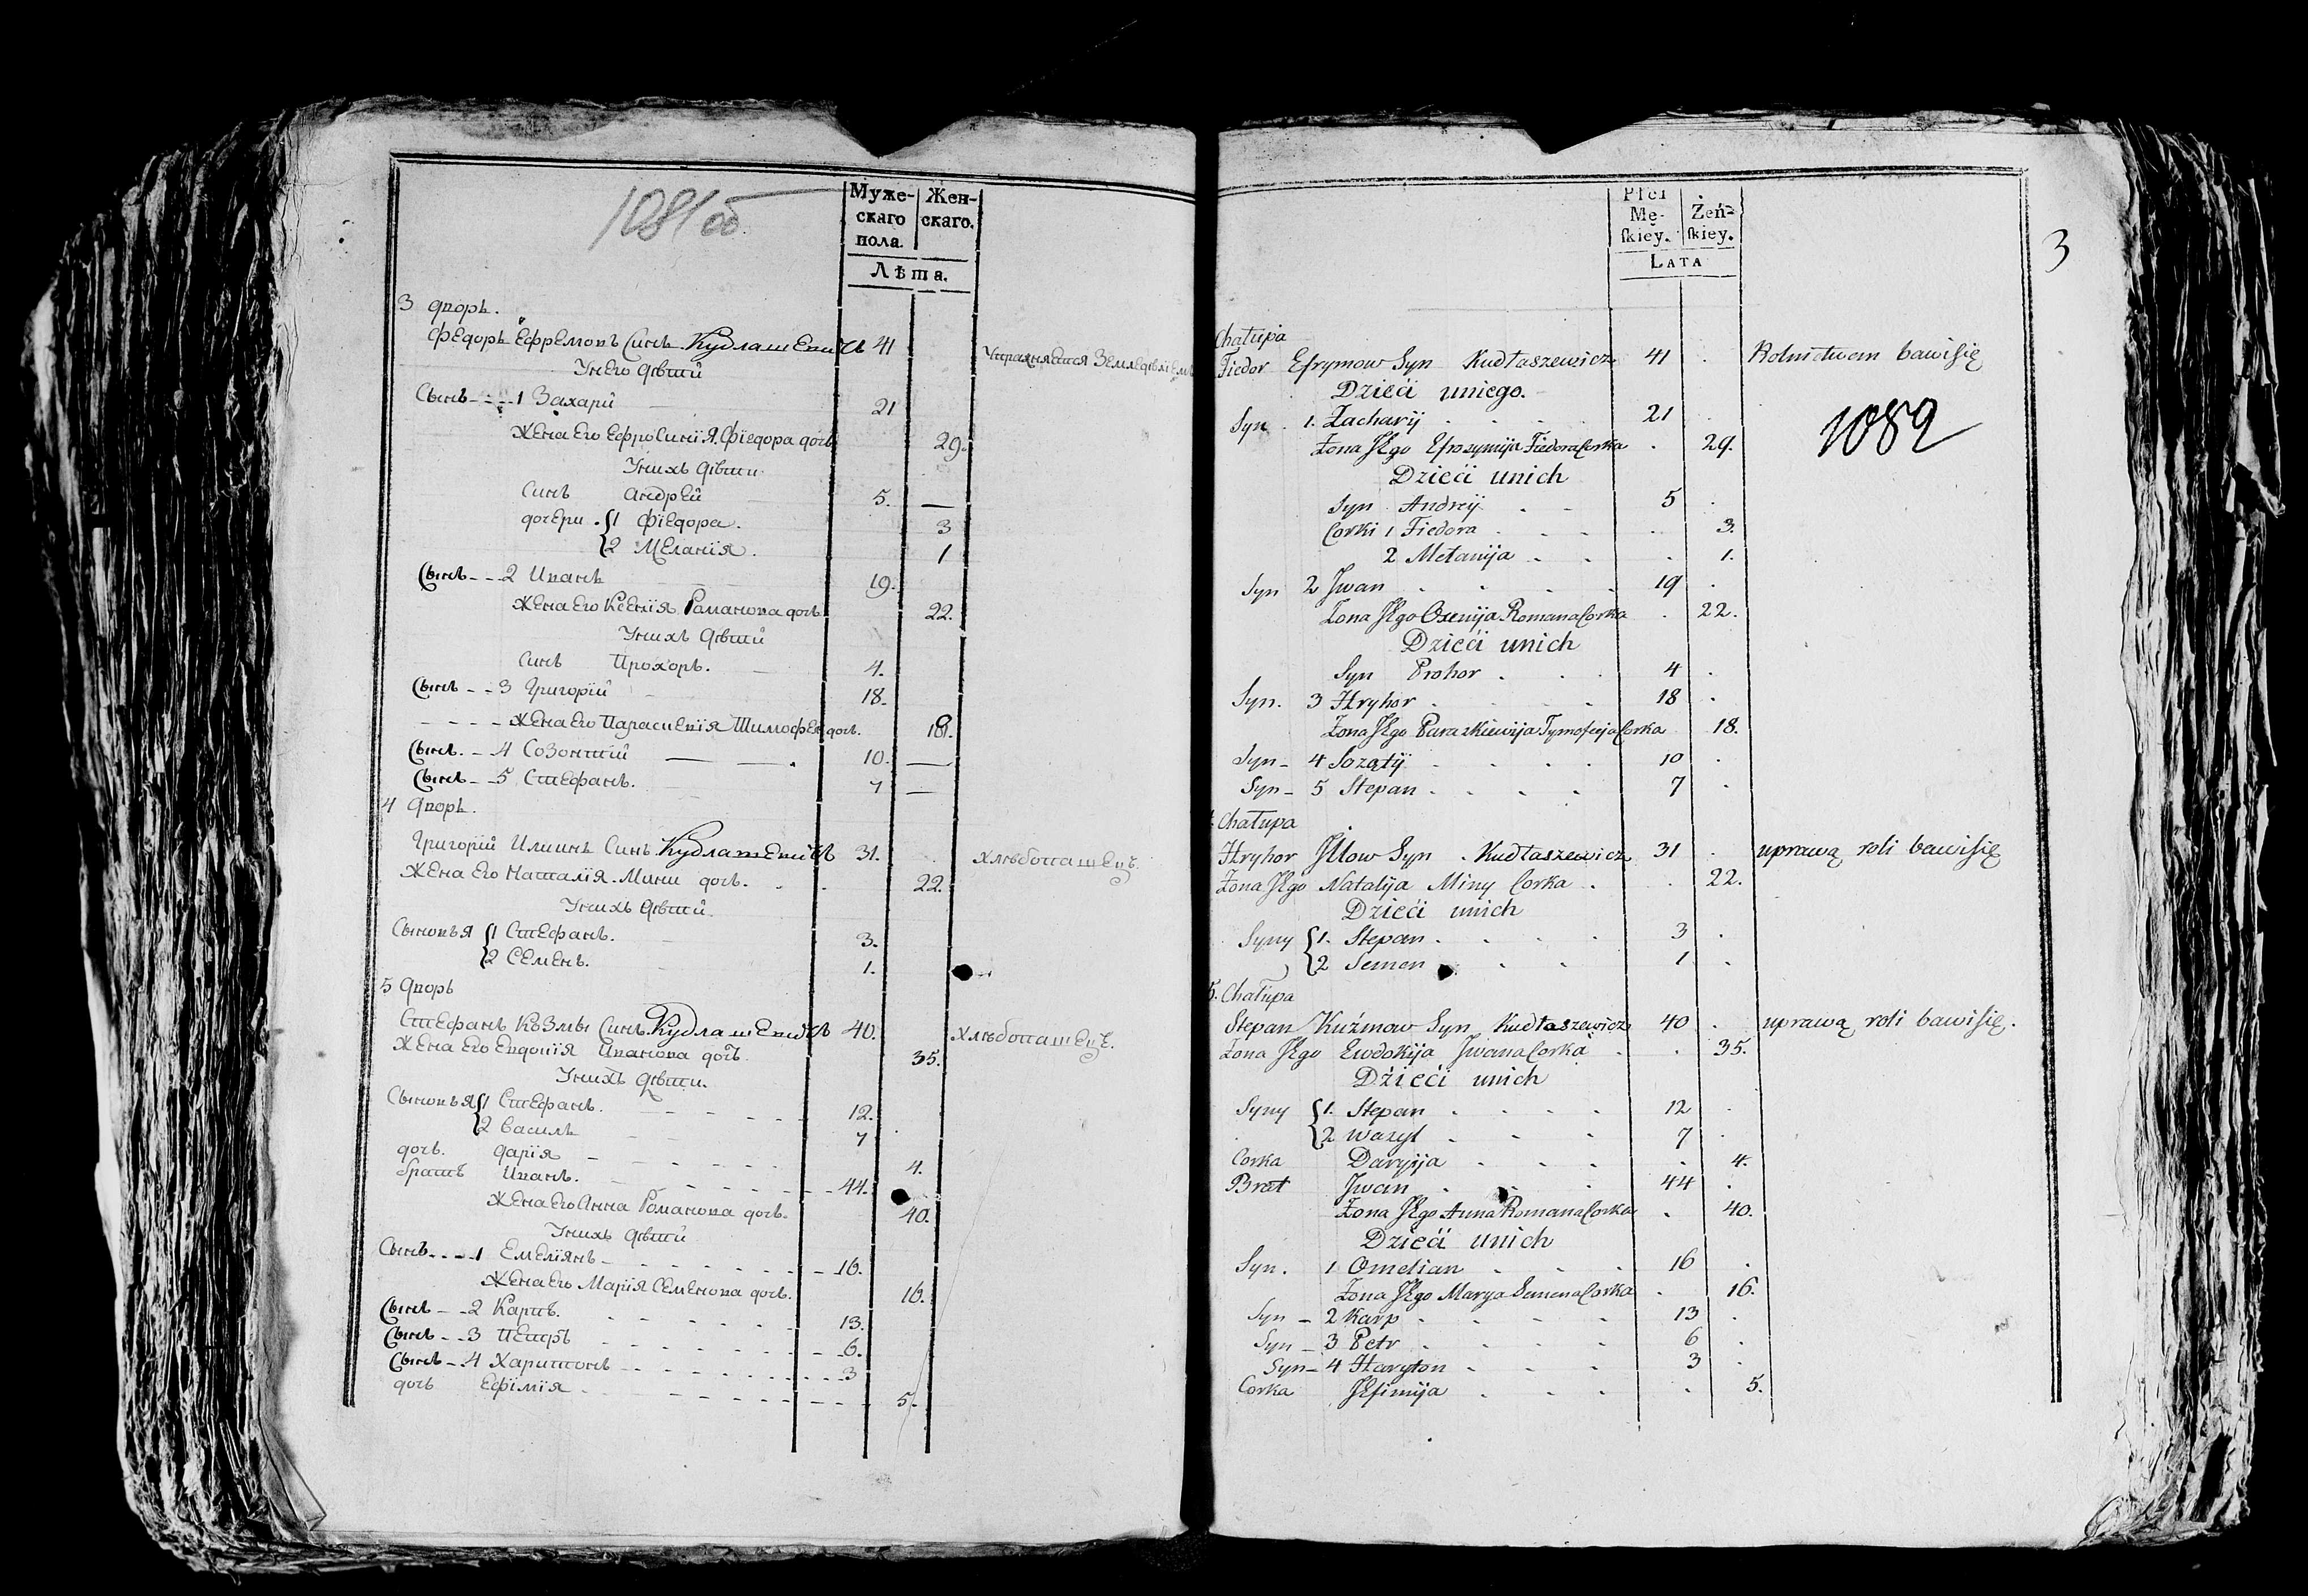 1081об.
Муже-
скаго
пола.
Жен-
скаго.
Лѣта.
3 дворъ.
Федоръ Ефремовъ Синъ Кудлашевичъ 41 Упражняется Земледѣліемъ
Унего дѣти
Сынъ - - 1 Захарий 21
Жена его Ефросинїя Фїедора дочь 29.
Унихъ дѣти
Синъ Андрей 5. —
дочери { 1 Фїедора. 3
2 Меланїя. 1
Сынъ - - 2 Иванъ 19.
Жена его Ксенїя Романова дочь 22.
Унихъ дѣти
Синъ Прохоръ. 4.
Сынъ - - 3 Григорїй 18.
- - - - Жена его Парасиевїя Тимофея дочь. 18.
Сынъ. - 4 Созонтий 10. —
Сынъ - - 5 Стефанъ. 7 —
4 дворъ.
Григорїй Илиинъ Синъ Кудлашевичъ 31. хлѣбопашецъ.
Жена его Наталїя Мини дочь. 22.
Унихъ дѣти.
Сыновья { 1 Стефанъ. 3.
2 Семенъ. 1.
5 дворъ
Стефанъ Козмы Синъ Кудлашевичъ 40. хлѣбопашецъ.
Жена его Евдокїя Иванова дочь. 35.
Унихъ дѣти.
Сыновья { 1 Стефанъ. 12.
2 Василь 7
дочь. Дарїя 4.
братъ Иванъ. 44.
Жена его Анна Романова дочь. 40.
Унихъ дѣти
Сынъ - - - 1 Емелїянъ 16.
Жена его Марїя Семенова дочь. 16.
Сынъ - - 2 Карпъ. 13.
Сынъ - - 3 Петръ 6.
Сынъ - - 4 Харитонъ 3
дочь Ефїмїя 5.
3
Płci
Mę-
ſkiey.
Żeń-
ſkiey.
LATA
Chałupa
Fiedor Efrymow Syn Kudłaszewicz 41 Rolnictwem bawisię
Dzieći uniego.
1082
Syn 1. Zacharij 21
Żona Jego Efrozynija Fiedora Corka 29.
Dzieći unich
Syn Andrij 5
Corki 1 Fiedora 3.
2 Mełanija 1.
Syn 2 Jwan 19
Żona Jego Oxenija Romana Corka 22.
Dzieći unich
Syn Prohor 4
Syn. 3 Hryhor 18
Żona Jego Paraskiewija Tymofieja Corka 18.
Syn - 4 Sozątij 10
Syn - 5 Stepan 7
4. Chałupa
Hryhor Jllow Syn Kudłaszewicz 31 uprawą roli bawisię
Żona Jego Natalija Miny Corka 22.
Dzieći unich
Syny { 1. Stepan 3
2 Semen 1
5. Chałupa
Stepan Kuźmow Syn Kudłaszewicz 40 uprawą roli bawisię.
Żona Jego Ewdokija Jwana Corka 35.
Dzieći unich
Syny { 1. Stepan 12
2 Wazyl 7
Corka Daryija 4.
Brat Jwan 44
Żona Jego Anna Romana Corka 40.
Dzieći unich
Syn. 1 Omelian 16
Żona Jego Marya Semena Corka 16.
Syn - 2 Karp 13
Syn - 3 Petr 6
Syn - 4 Haryton 3
Corka Jefimija 5.